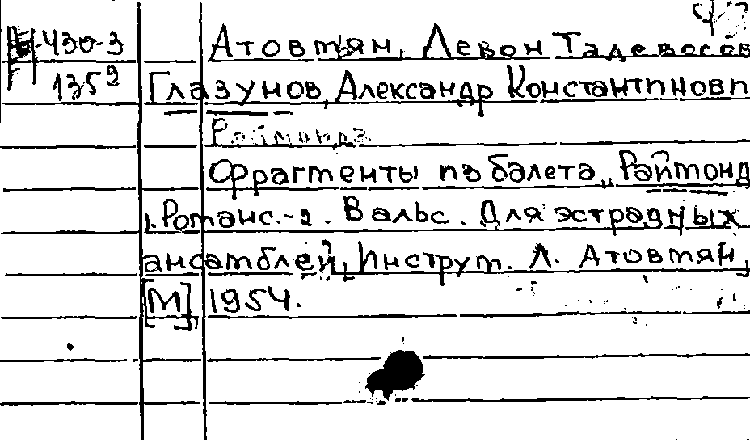 430-3 Атовмян, Левон Тадевосов
1359 Глазунов, Александр Константинови
Раймонда
Фрагменты из балета „Раймонд
1. Романс. - 2. Вальс. Для эстрадных
ансамблей, Инструм. Л. Атовмян,
[М] 1954.